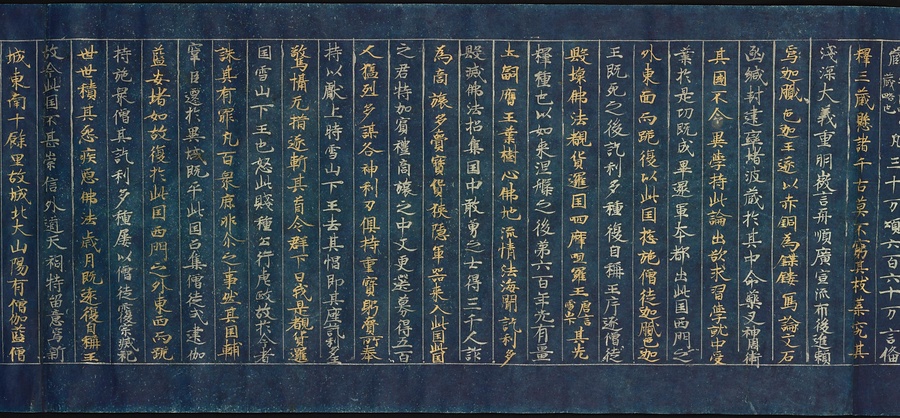 藏 凡三十万頌六百六十万言俻
釋三藏懸諸千古莫不窮其枝葉究其
淺深大義重明微言再順廣宣流布後進賴
焉迦膩色迦王遂以赤銅為鍱鏤寫論文石
函緘封建窣堵波蔵於其中命藥叉神周衛
其國不令異學持此論出欲求習學就中受
業於是切既成畢還軍夲都出此国西門之
外東面而跪復以此国揔施僧徒迦膩色迦
王既死之後訖利多種復自稱王斥逐僧徒
毀壞佛法覩貨邏国呬摩呾羅王唐言雪山下其先
釋種也以如来涅槃之後第六百年光有畺
土嗣膺王業樹心佛地流情法海聞訖利多
毀滅佛法招集国中敢勇之士得三千人詐
為商旅多賷寶貨挾隐軍器来入此国此国
之君特加賔禮商旅之中又更選募得五百
人猛烈多謀各神利刃俱持重寶躬賷所奉
持以獻上時雪山下王去其帽即其座訖利多王
驚懾无措遂斬其首令群下曰我是覩貨邏
国雪山下王也怒此賤種公行虐政故於今者
誅其有罪凡百衆庶非尒之事然其国輔
宰臣遷於異域既平此国召集僧徒式建伽
藍安堵如故復於此国西門之外東面而跪
持施衆僧其訖利多種屢以僧徒覆宗滅祀
世世積其怨疾惡佛法歳月既逺復自稱王
故今此国不甚崇信外道天祠特留意焉新
城東南十餘里故城北大山陽有僧伽藍僧